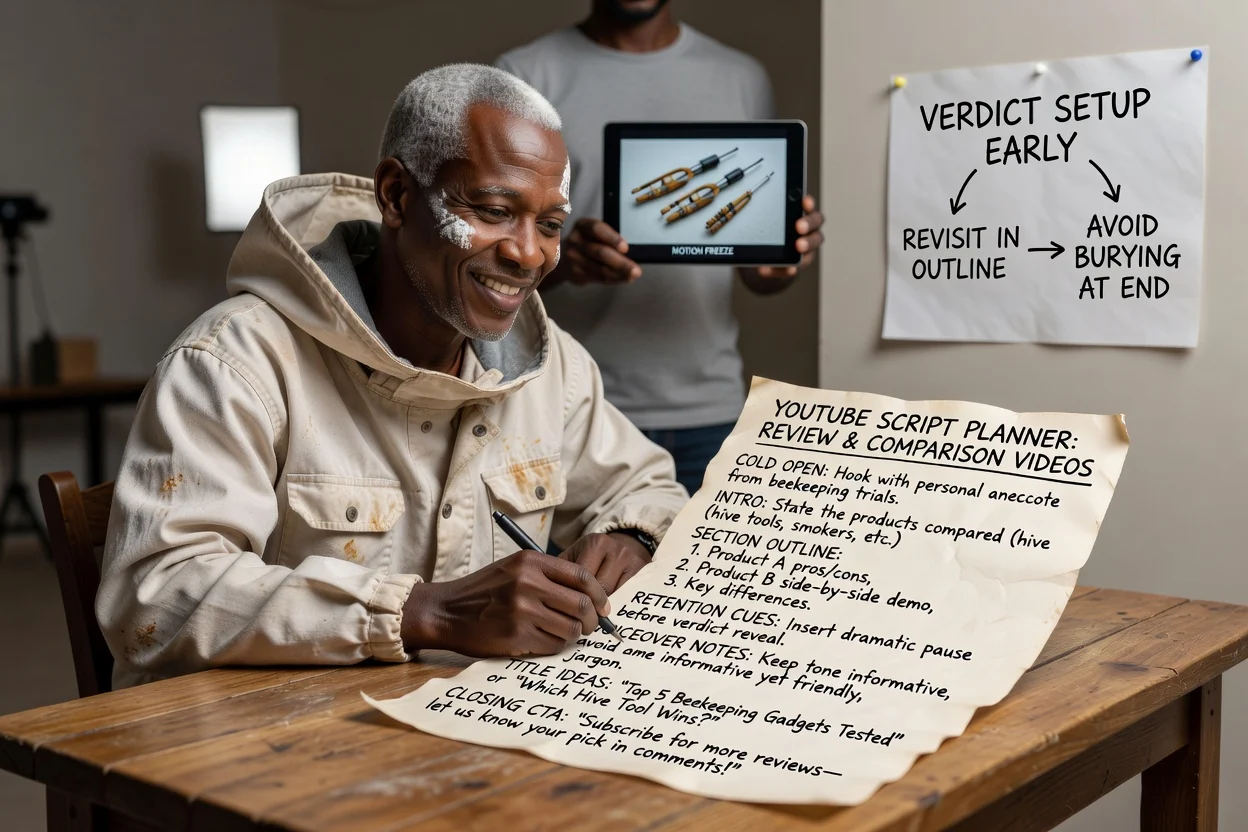 VERDICT SETUP
EARLY
REVISIT IN
OUTLINE
AVOID
BURYING
AT END
MOTION FREEZE
YOUTUBE SCRIPT PLANNER:
REVIEW & COMPARISON VIDEOS
COLD OPEN: Hook with personal aneccote
from beekeeping trials.
INTRO: State the products compared (hive
(hive tools, smokers, etc.)
SECTION OUTLINE:
1. Product A pros/cons,
2. Product B side-by-side demo,
3. Key differences.
RETENTION CUES: Insert dramatic pause
before verdict reveal.
NOTES: Keep tone informative,
avoid ame informative yet friendly,
jargon.
TITLE IDEAS: "Top 5 Beekeeping Gadgets Tested"
or "Which Hive Tool Wins?"
CLOSING CTA: "Subscribe for more reviews—
let us know your pick in comments!"